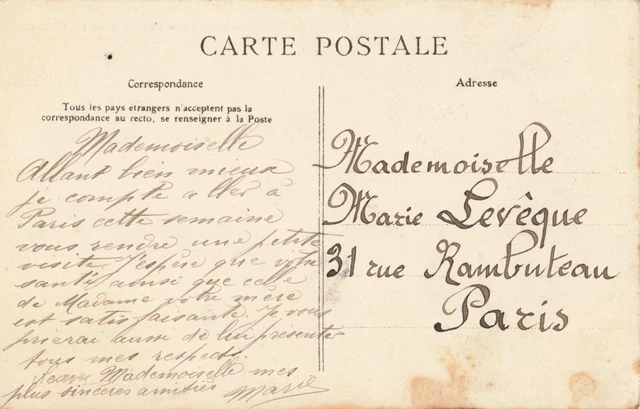 CARTE POSTALE
Correspondance
Tous les pays etrangers n'acceptent pas la
correspondance au recto, se renseigner à la Poste
Mademoiselle
Allant bien mieux
je compte aller à
Paris cette semaine
vous rendre une petite
visite. J'espère que votre
santé ainsi que celle
de Madame votre mère
est satisfaisante. Je vous
prierai aussi de lui presenter
tous mes respects.
Recevez Mademoiselle mes
plus sincères amitiés
Marie
Adresse
Mademoiselle
Marie Levèque
31 rue Rambuteau
Paris